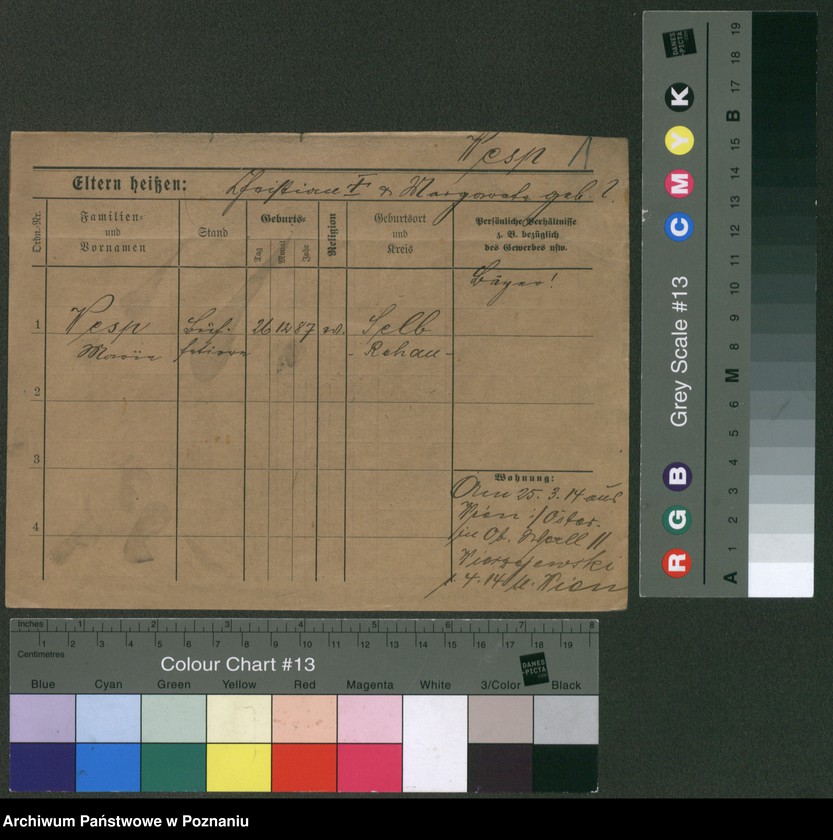 Vesp 1
Eltern heißen: Christian † & Margarete geb. ?
Ordn.-Nr.
Familien-
und
Vornamen
Stand
Geburts-
Tag
Monat
Jahr
Religion
Geburtsort
und
Kreis
Persönliche Verhältnisse
z. B. bezüglich
des Gewerbes usw.
Bayer!
1 Vesp 26 12 87 Selb
- Rehau -
2
3
4
Wohnung:
Am 25. 3. 14 aus
Wien
Wierzejewski
4. 14 n. Wien
DANES
-PICTA
.COM
Grey Scale #13
R G B C M Y K
A 1 2 3 4 5 6 M 8 9 10 11 12 13 14 15 B 17 18 19
Inches 1 2 3 4 5 6 7 8
Centimetres 1 2 3 4 5 6 7 8 9 10 11 12 13 14 15 16 17 18 19
Colour Chart #13
DANES
-PICTA
.COM
Blue Cyan Green Yellow Red Magenta White 3/Color Black
Archiwum Państwowe w Poznaniu